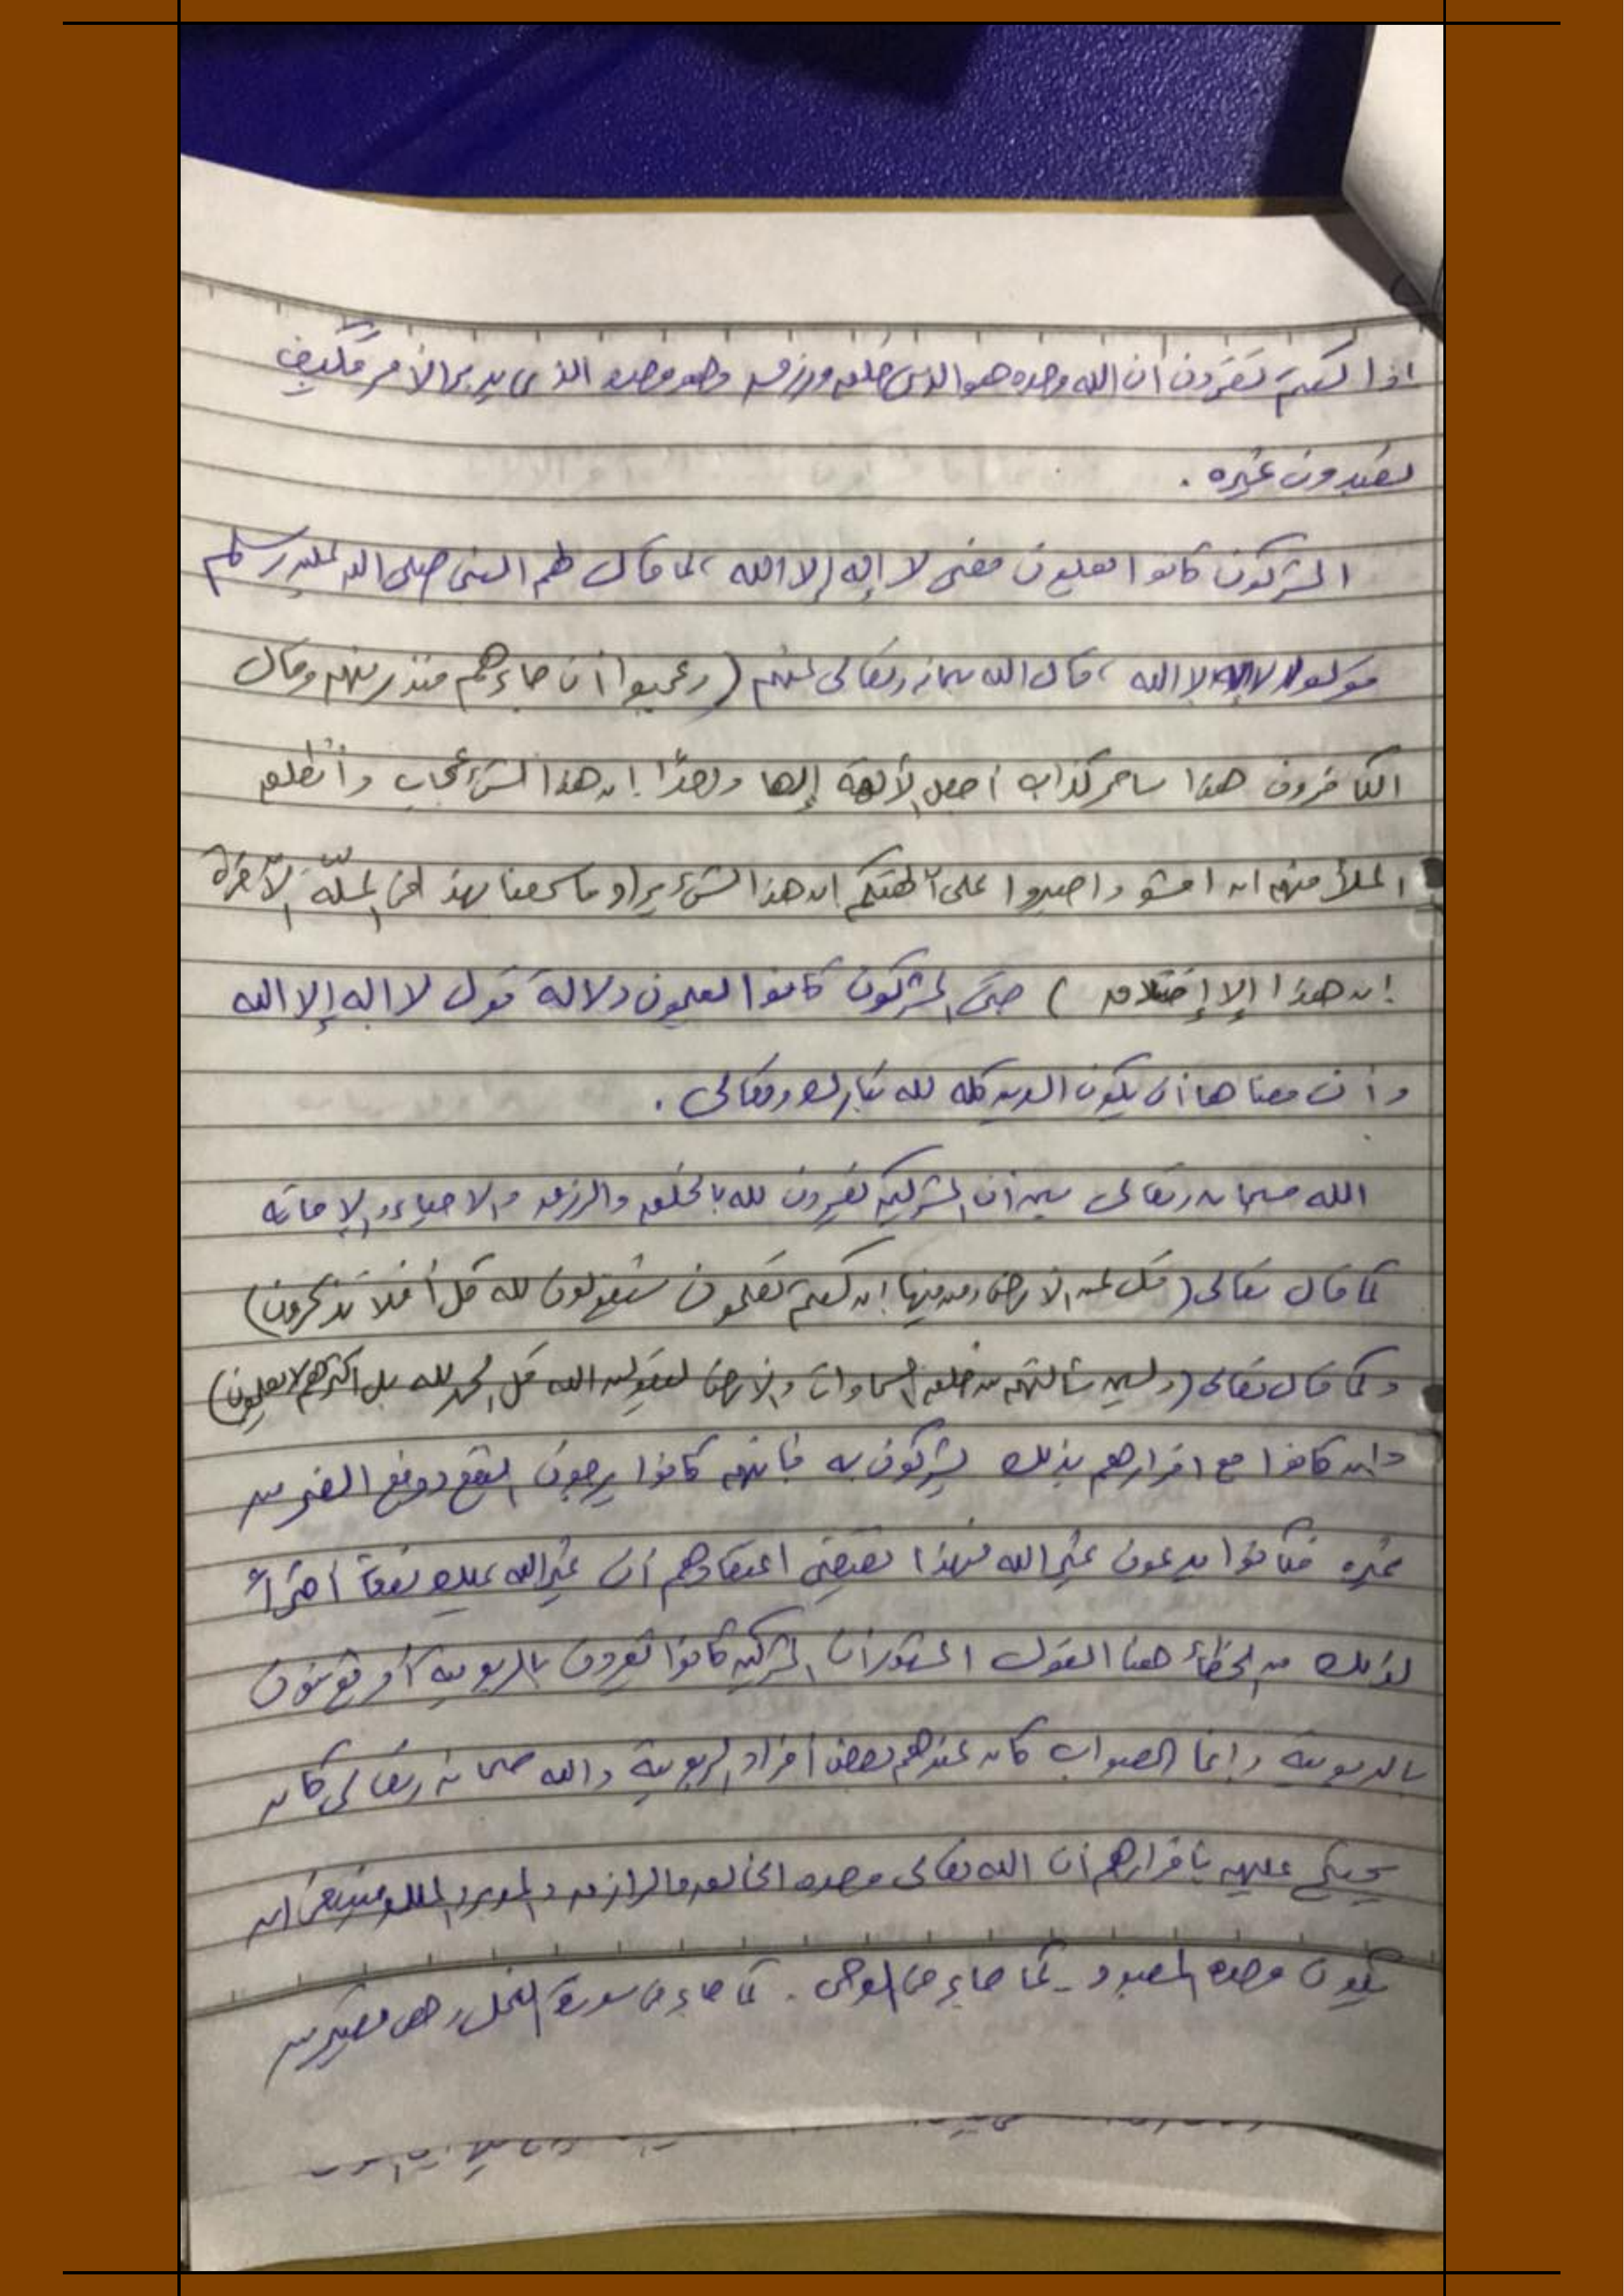 اذا كنتم تقرون أن الله وحده هو الذي خلق ورزق وهو وحده الذي يدبر الأمر فكيف
تعبدون غيره .
المشركون كانوا يعلمون معنى لا إله إلا الله ، لما قال لهم النبي صلى الله عليه وسلم
قولوا لا إله إلا الله ، قال الله سبحانه وتعالى عنهم ( وعجبوا أن جاءهم منذر منهم وقال
الكافرون هذا ساحر كذاب أجعل الألهة إلها واحدًا إن هذا لشئ عجاب وأنطلق
الملأ منهم ان امشو واصبروا على آلهتكم إن هذا لشئ يراد ما سمعنا بهذ في الملّة الآخرة
إن هذا إلا إختلاق ) حتى المشركون كانوا يعلمون دلالة قول لا اله إلا الله
وأن معناها أن يكون الدين كله لله تبارك وتعالى .
الله سبحانه وتعالى بين أن المشركين يقرون لله بالخلق والرزق والاحياء والإماته
كما قال تعالى ( قل لمن الارض ومن فيها إن كنتم تعلمون سيقولون لله قل أفلا تذكرون )
وكما قال تعالى ( ولئن سألتهم من خلق السماوات والأرض ليقولن الله قل الحمد لله بل اكثرهم لا يعلمون )
وإن كانوا مع اقرارهم بذلك يشركون به فإنهم كانوا يرجون النفع ودفع الضر من
غيره فكانوا يدعون غير الله فهذا يقتضي اعتقادهم أن غير الله يملك نفعاً
لذلك من الخطأ هنا القول المشهور ان المشركين كانوا يقرون بالربوبية أو يؤمنون
بالربوبية وإنما الصواب كان عندهم بعض أفراد الربوبية والله سبحانه وتعالى كان
يحتج عليهم بإقرارهم أن الله تعالى وحده الخالق والرازق والمدبر والملك فينبغي ان
يكون وحده المعبود - كما جاء في الوحي . كما جاء في سورة النمل